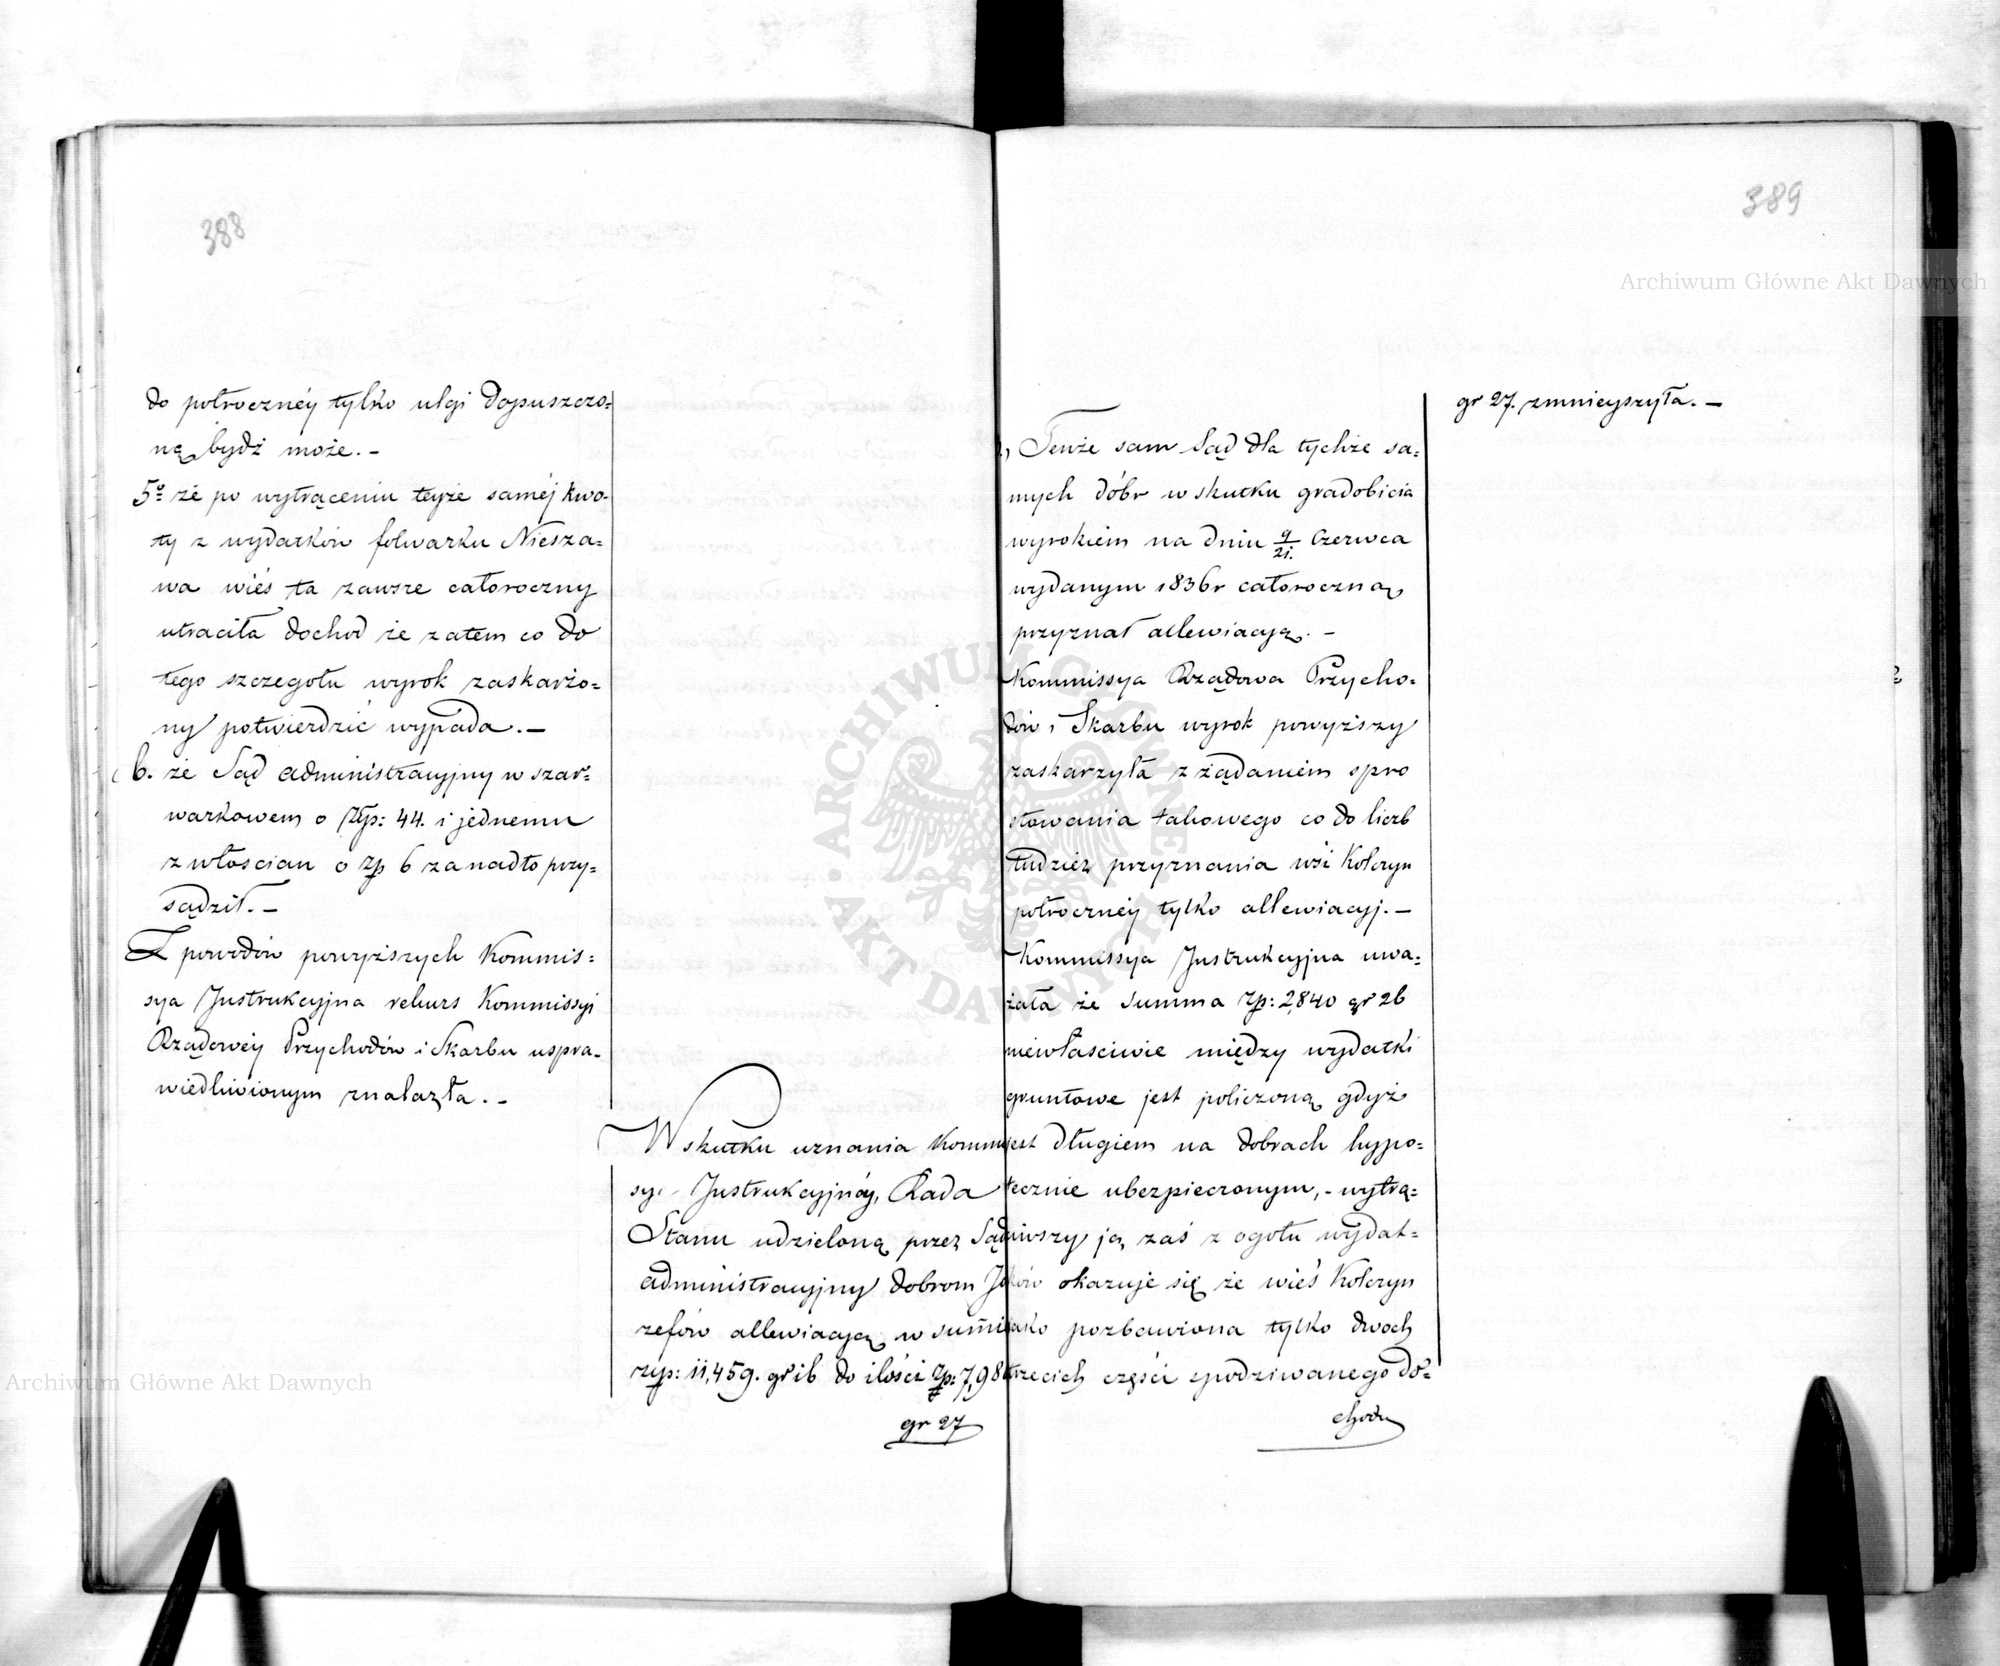 388
do połroczney tylko ulgi dopuszczo=
ną bydź może. –
5º że po wytrąceniu teyże saméj kwo-
ty z wydatków folwarku Niesza=
wa wieś ta zawsze całoroczny
utraciła dochod że zatem co do
tego szczegołu wyrok zaskarżo=
ny potwierdzić wypada. –
6. że Sąd administracyjny w szar=
warkowem o złp: 44. i jednemu
z włoscian o zp 6 zanadto przy=
sądził. –
Z powodów powyższych Kommis=
sya Instrukcyjna rekurs Kommissyi
Rządowéy Przychodów i Skarbu uspra-
wiedliwionym znalazła. –
W skutku uznania Kommis
syi Instrukcyjnéy, Rada
Stanu udzieloną przez Sąd
administracyjny dobrom Jó
zefów allewiacyą w summie
złp: 11,459. gr 16 do ilości zp: 7,98
gr 27
389
Tenże sam Sąd dla tychże sa=
mych dóbr w skutku gradobicia
wyrokiem na dniu 9/21. Czerwca
wydanym 1836r całoroczną
przyznał allewiacyą. –
Kommissya Rządowa Przycho=
dów i Skarbu wyrok powyższy
zaskarzyła z żądaniem spro
stowania takowego co do liczb
tudzież przyznania wsi Kolczyn
połroczney tylko allewiacyj. –
Kommissya Instrukcyjna uwa=
żała że summa zp: 2,840 gr 26
niewłasciwie między wydatki
gruntowe jest policzoną gdyż
jest długiem na dobrach hypo=
tecznie ubezpieczonym, – wytrą=
ciwszy ją zaś z ogołu wydat=
ków okazuje się że wieś Kolczyn
jako pozbawiona tylko dwoch
trzecich części spodziwanego do=
chodu
gr 27. zmnieyszyła. –
Archiwum Główne Akt Dawnych
Archiwum Główne Akt Dawnych
ARCHIWUM GŁÓWNE AKT DAWNYCH